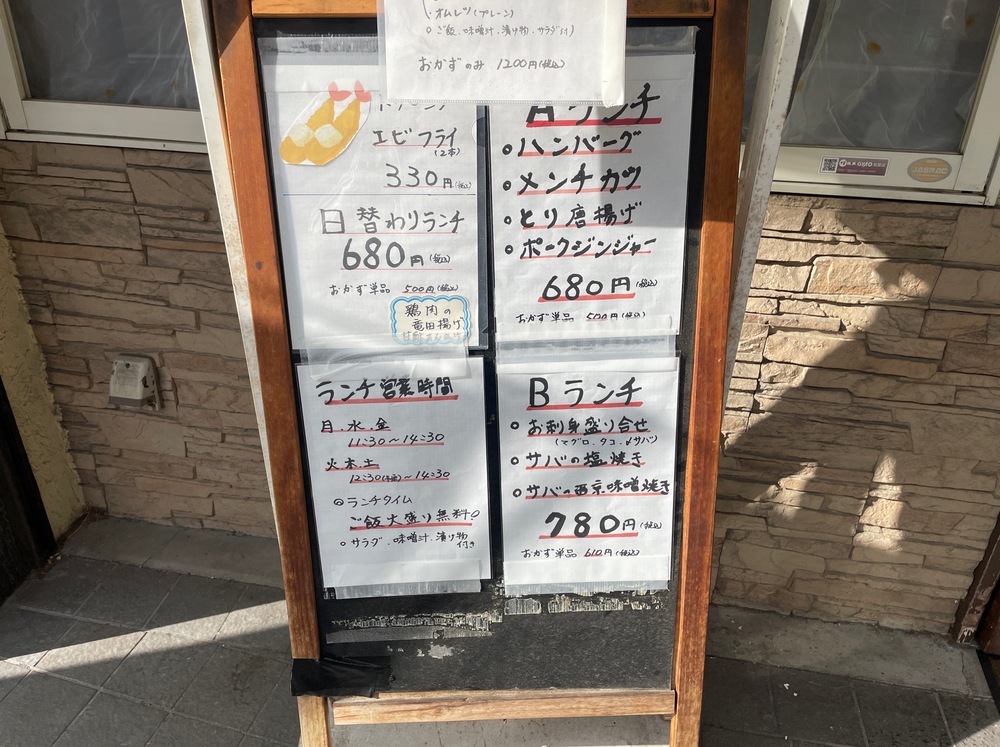 ・オムレツ(プレーン)
○ご飯、味噌汁、漬け物、サラダ付
おかずのみ 1200円(税込)
エビフライ
(2本)
330円(税込)
日替わりランチ
680円(税込)
おかず単品 500円(税込)
鶏肉の
竜田揚げ
Aランチ
○ハンバーグ
○メンチカツ
○とり唐揚げ
○ポークジンジャー
680円(税込)
おかず単品 500円(税込)
ランチ営業時間
月.水.金
11:30〜14:30
火.木.土
12:30(予定)〜14:30
◎ランチタイム
ご飯大盛り無料
○サラダ、味噌汁、漬け物
付き
Bランチ
○お刺身盛り合せ
(マグロ、タコ、〆サバ)
○サバの塩焼き
○サバの西京味噌焼き
780円(税込)
おかず単品 610円(税込)
JASRAC